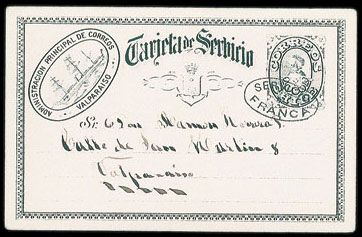 ADMINISTRACION PRINCIPAL DE CORREOS
VALPARAISO
Tarjeta de Servicio
CORREOS
FRANCA
Sr Don Ramon
Calle de San Martin 8
Valparaiso